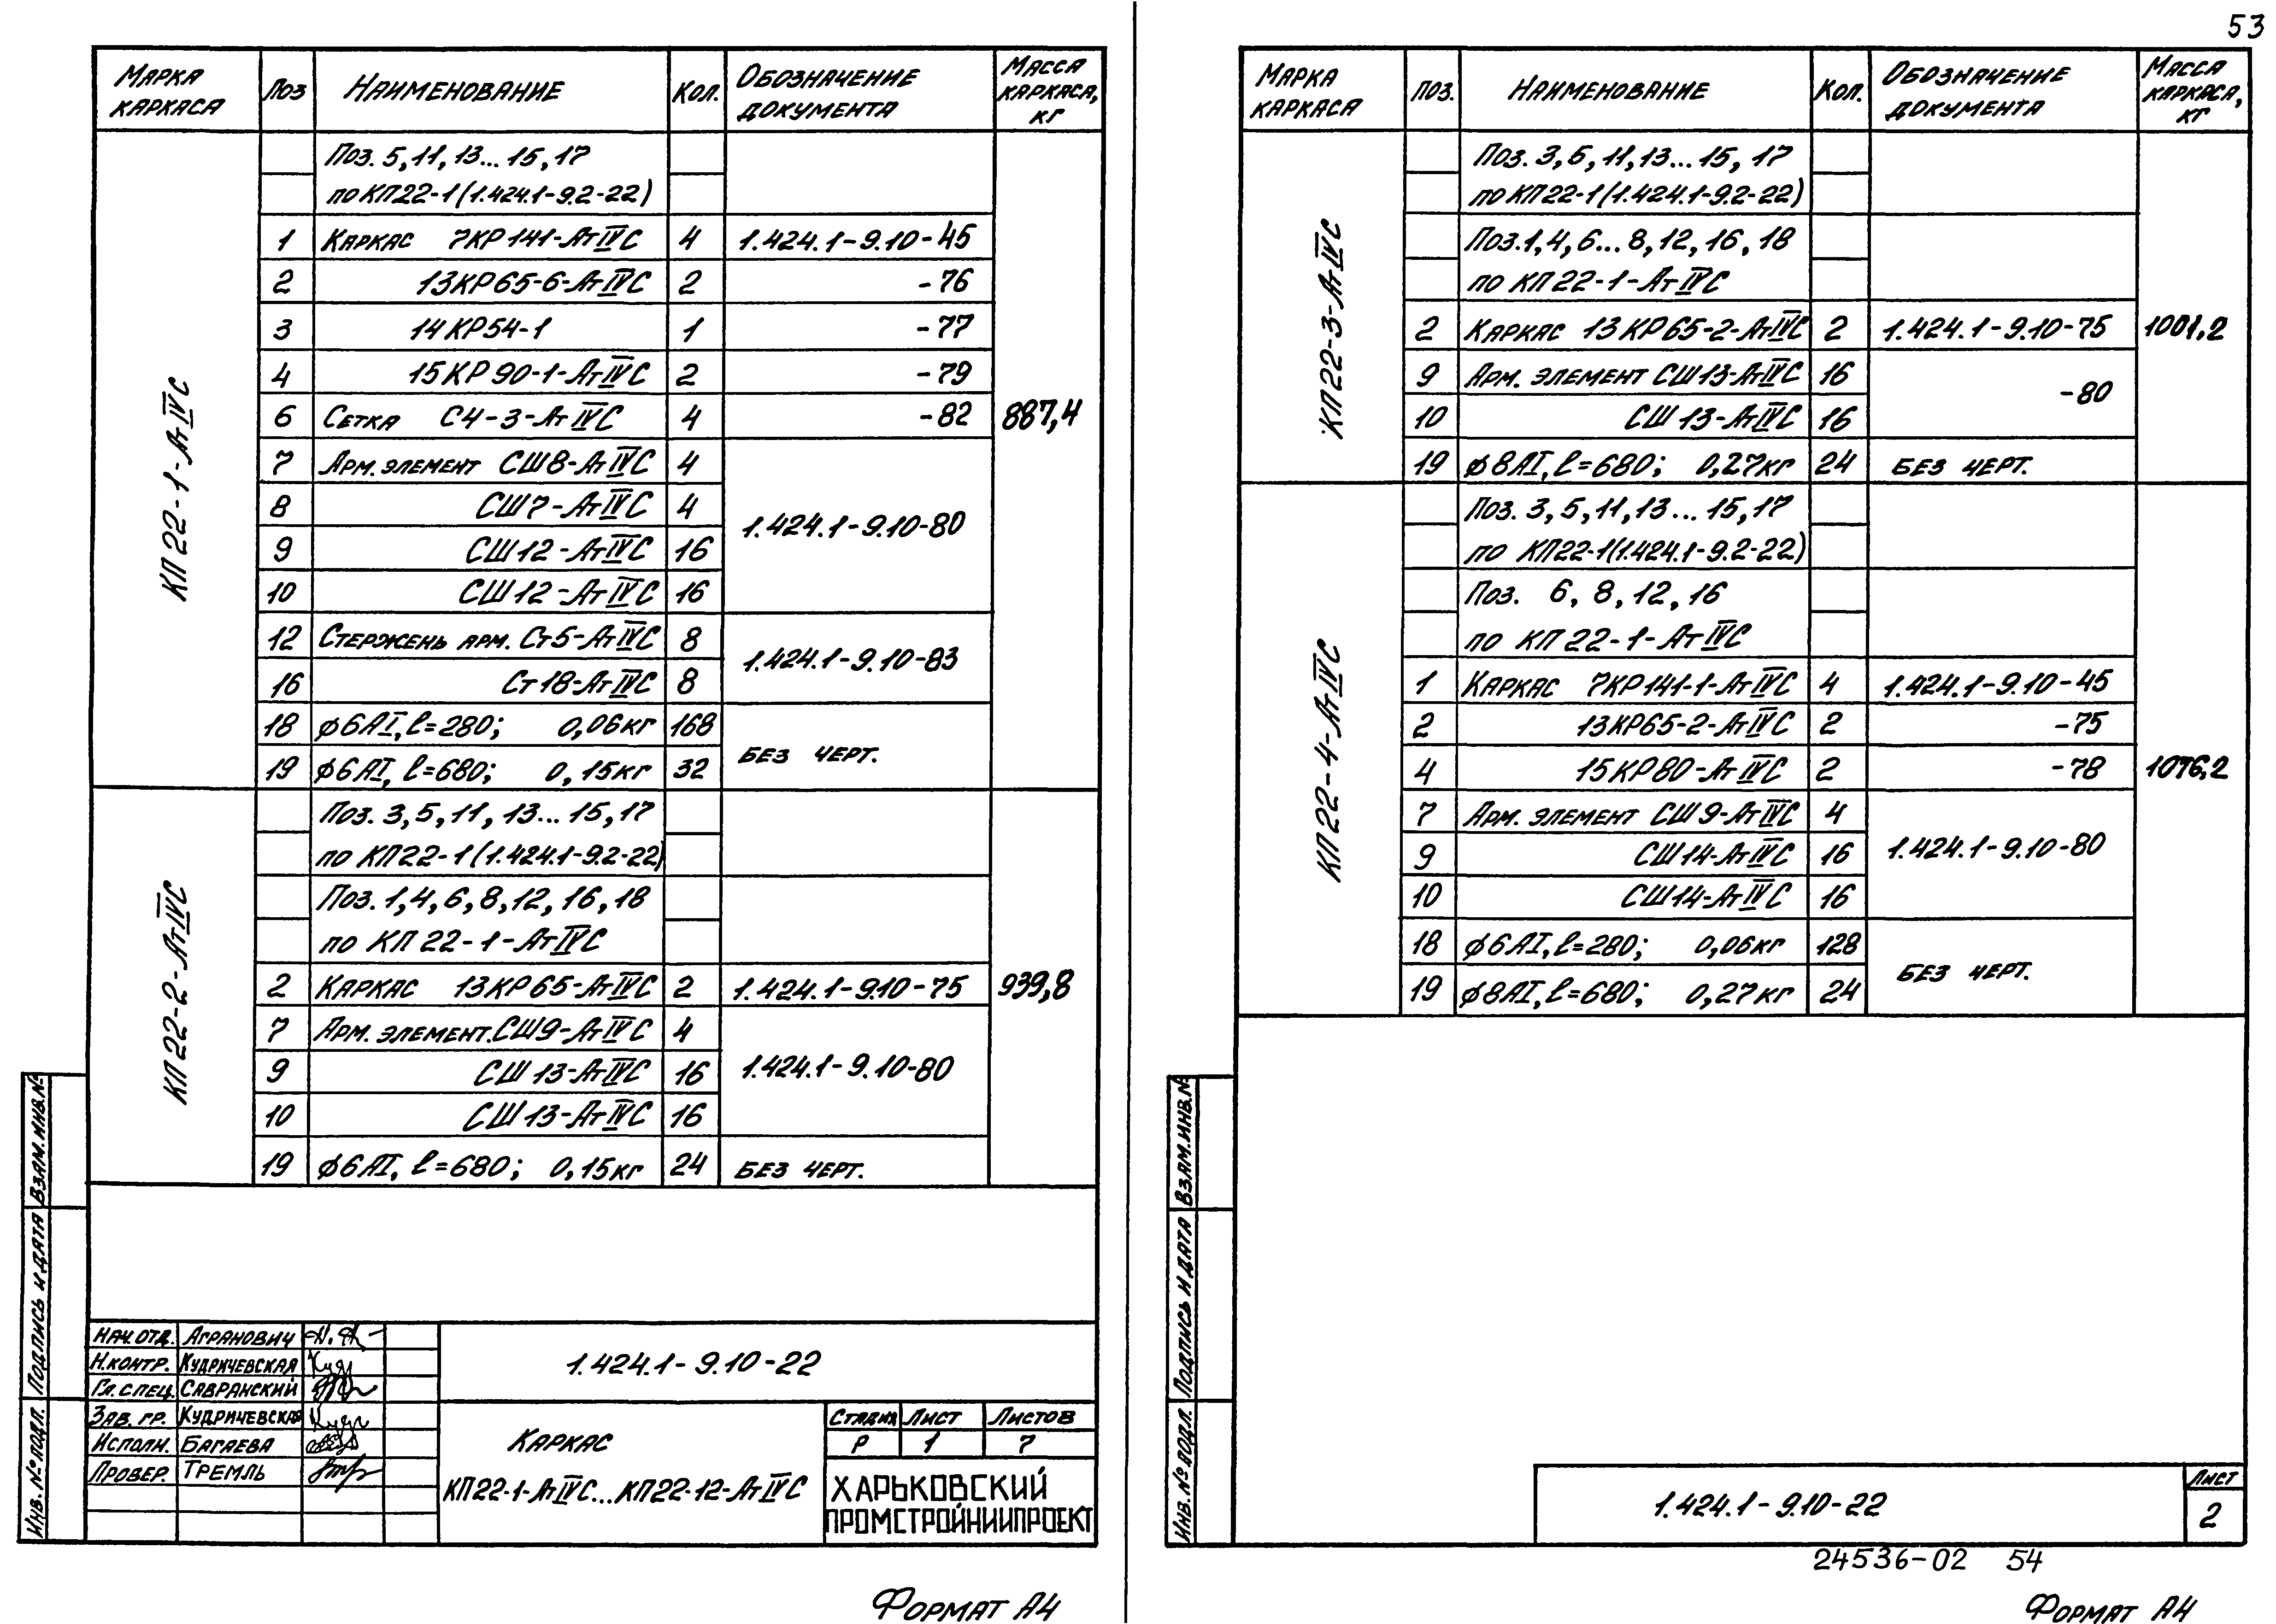 53
Марка каркаса Поз Наименование Кол. Обозначение документа Масса каркаса, кг
КП22-1-АтIVС 887,4
Поз. 5, 11, 13...15, 17
по КП22-1 (1.424.1-9.2-22)
1 Каркас 7КР141-АтIVС 4 1.424.1-9.10-45
2 13КР65-6-АтIVС 2 -76
3 14КР54-1 1 -77
4 15КР90-1-АтIVС 2 -79
6 Сетка С4-3-АтIVС 4 -82
7 Арм. элемент СШ8-АтIVС 4 1.424.1-9.10-80
8 СШ7-АтIVС 4
9 СШ12-АтIVС 16
10 СШ12-АтIVС 16
12 Стержень арм. Ст5-АтIVС 8 1.424.1-9.10-83
16 Ст18-АтIVС 8
18 ϕ6АI, ℓ=280; 0,06кг 168 без черт.
19 ϕ6АI, ℓ=680; 0,15кг 32
КП22-2-АтIVС 939,8
Поз. 3, 5, 11, 13...15, 17
по КП22-1 (1.424.1-9.2-22)
Поз. 1, 4, 6, 8, 12, 16, 18
по КП22-1-АтIVС
2 Каркас 13КР65-АтIVС 2 1.424.1-9.10-75
7 Арм. элемент. СШ9-АтIVС 4 1.424.1-9.10-80
9 СШ13-АтIVС 16
10 СШ13-АтIVС 16
19 ϕ6АI, ℓ=680; 0,15кг 24 без черт.
Взам.инв.№
Подпись и дата
Инв. № подл.
Нач. отд. Агранович
Н.контр. Кудричевская
Гл. спец. Савранский
Зав. гр. Кудричевская
Исполн. Багаева
Провер. Тремль
1.424.1-9.10-22
Каркас
КП22-1-АтIVС...КП22-12-АтIVС
Стадия Лист Листов
Р 1 7
ХАРЬКОВСКИЙ
ПРОМСТРОЙНИИПРОЕКТ
Формат А4
Марка каркаса Поз. Наименование Кол. Обозначение документа Масса каркаса, кг
КП22-3-АтIVС 1001,2
Поз. 3, 5, 11, 13...15, 17
по КП22-1 (1.424.1-9.2-22)
Поз. 1, 4, 6...8, 12, 16, 18
по КП22-1-АтIVС
2 Каркас 13КР65-2-АтIVС 2 1.424.1-9.10-75
9 Арм. элемент СШ13-АтIVС 16 -80
10 СШ13-АтIVС 16
19 ϕ8АI, ℓ=680; 0,27кг 24 без черт.
КП22-4-АтIVС 1076,2
Поз. 3, 5, 11, 13...15, 17
по КП22-1 (1.424.1-9.2-22)
Поз. 6, 8, 12, 16
по КП22-1-АтIVС
1 Каркас 7КР141-1-АтIVС 4 1.424.1-9.10-45
2 13КР65-2-АтIVС 2 -75
4 15КР80-АтIVС 2 -78
7 Арм. элемент СШ9-АтIVС 4 1.424.1-9.10-80
9 СШ14-АтIVС 16
10 СШ14-АтIVС 16
18 ϕ6АI, ℓ=280; 0,06кг 128 без черт.
19 ϕ8АI, ℓ=680; 0,27кг 24
Взам.инв.№
Подпись и дата
Инв. № подл.
1.424.1-9.10-22
Лист
2
24536-02 54
Формат А4